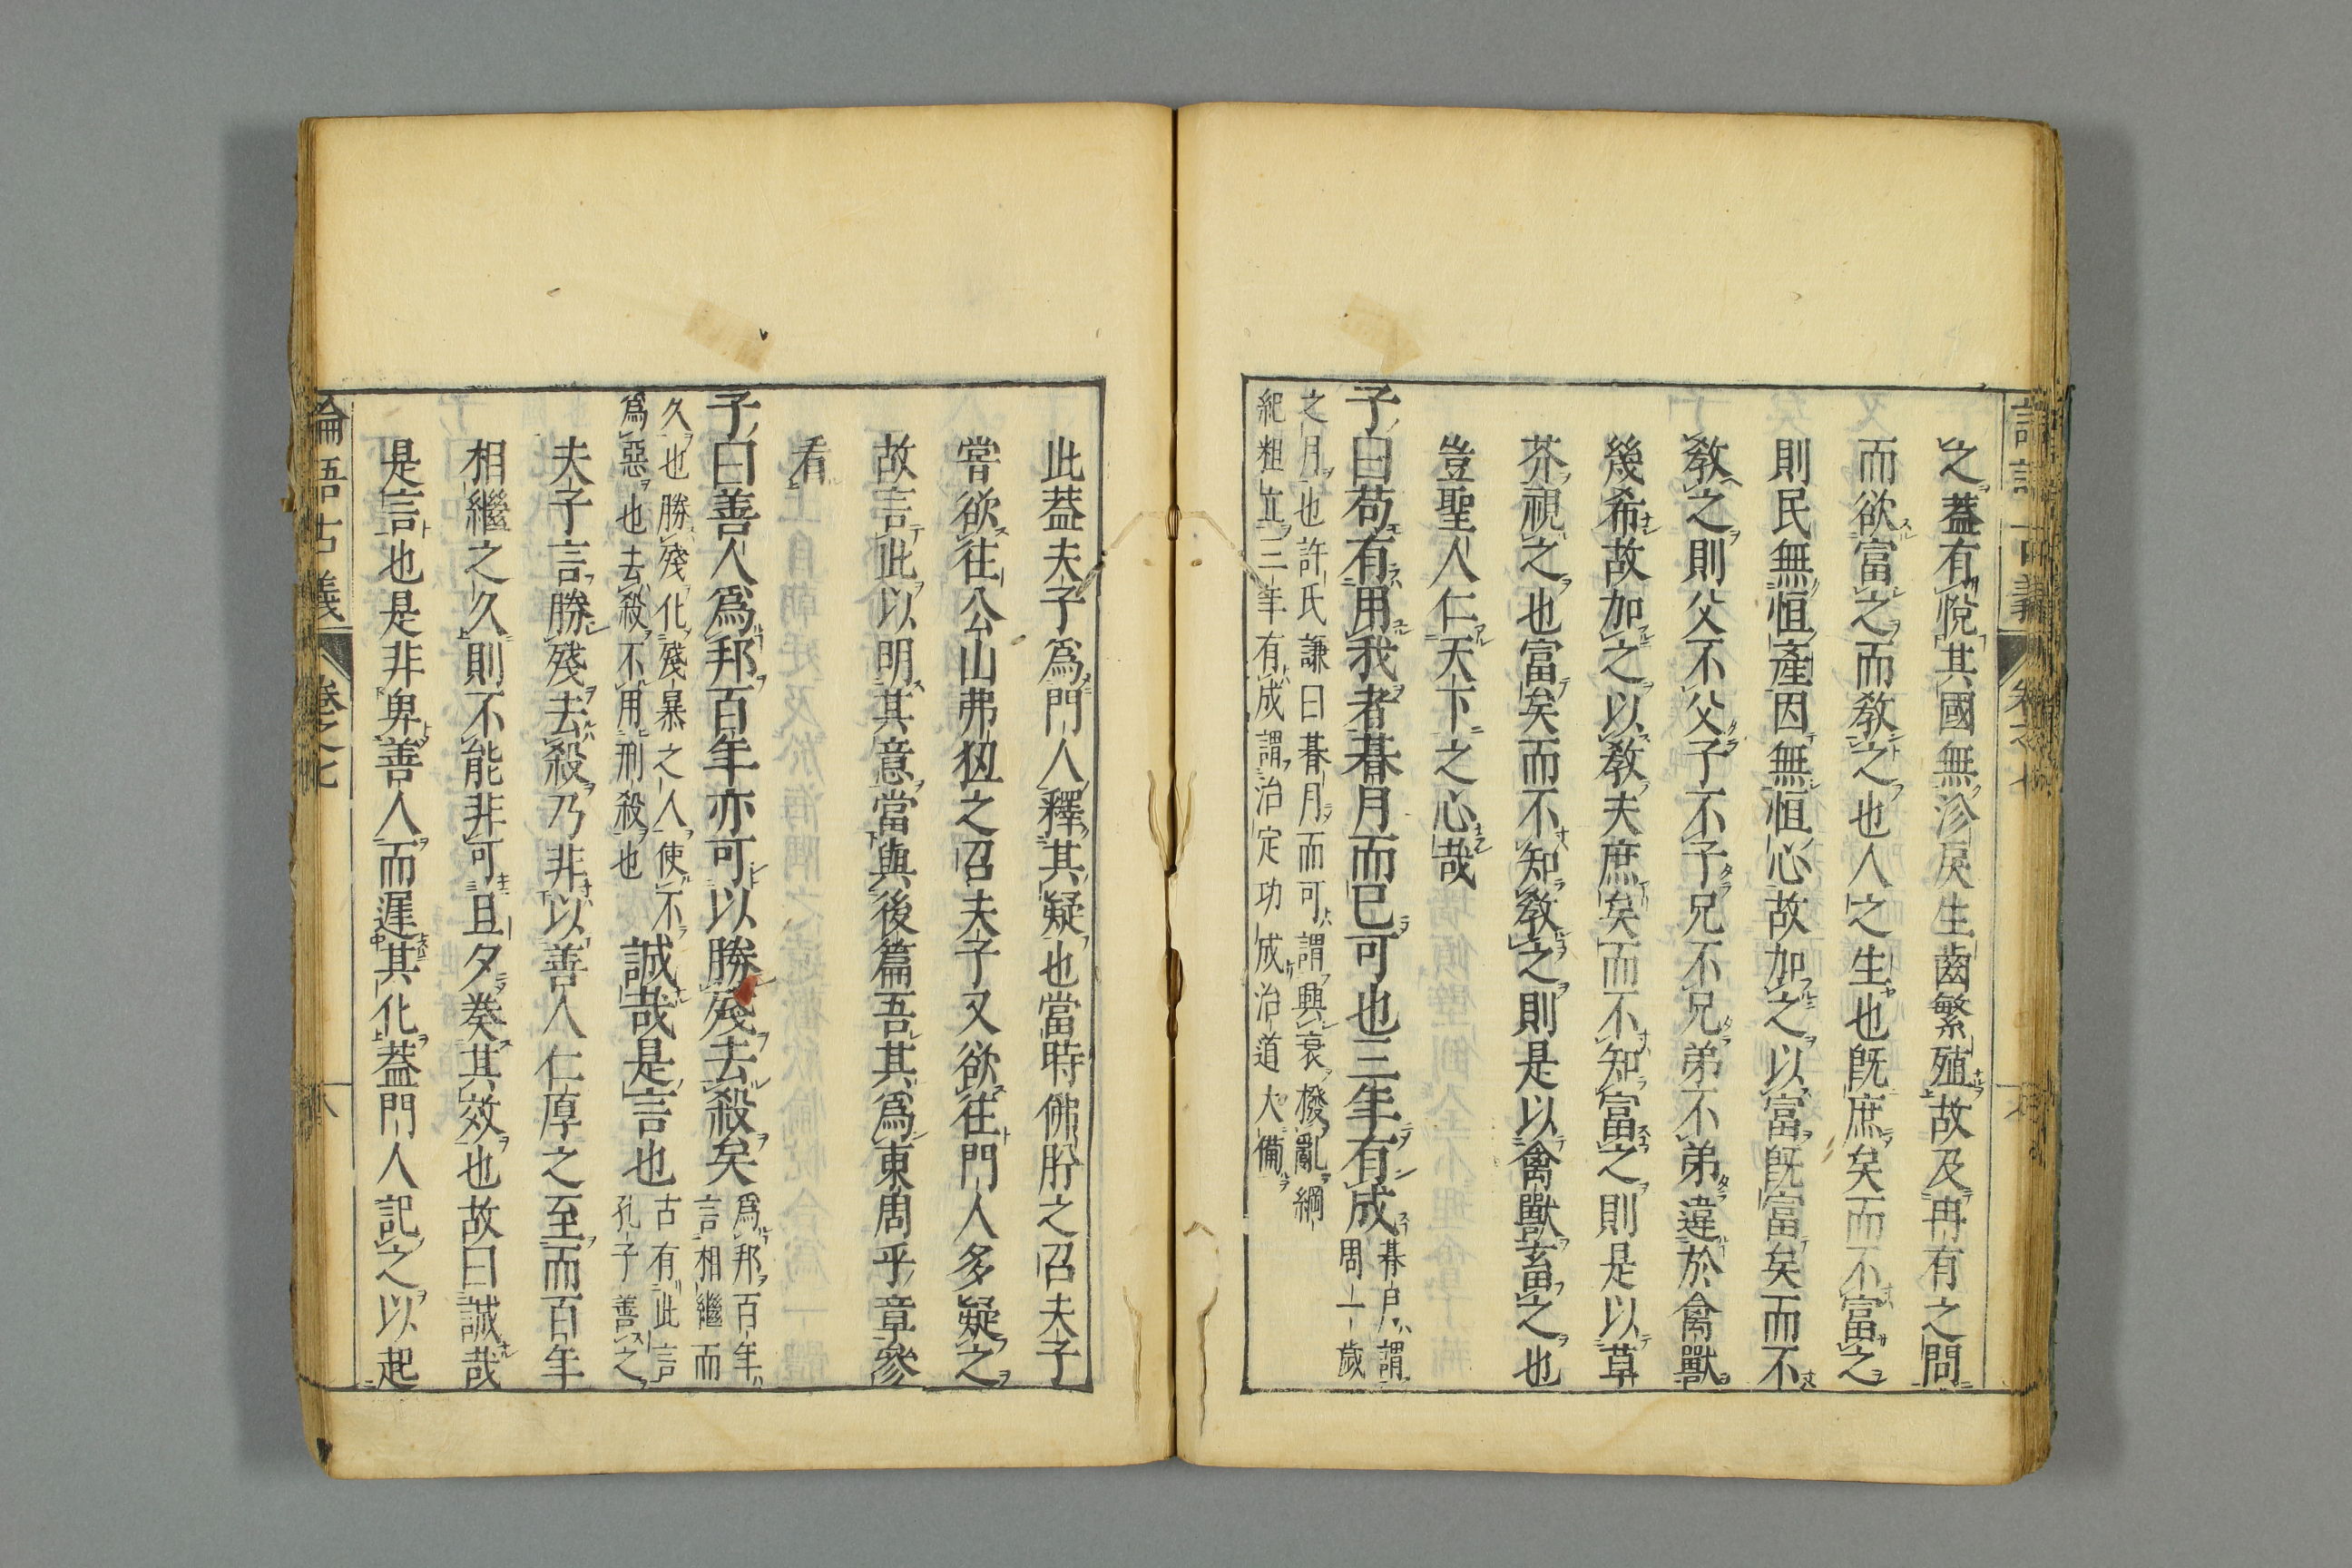 之蓋有悅其國無沴戾生齒繁殖故及冉有之問
而欲富之而教之也人之生也既庶矣而不富之
則民無恒產因無恒心故加之以富既富矣而不
教之則父不父子不子兄不兄弟不弟違於禽獸
幾希故加之以教夫庶矣而不知富之則是以草
芥視之也富矣而不知教之則是以禽獸畜之也
豈聖人仁天下之心哉
子曰苟有用我者朞月而已可也三年有成
朞月謂周一歲
之月也許氏謙曰朞月而可謂興衰撥亂綱
紀粗立三年有成謂治定功成治道大備
此蓋夫子爲門人釋其疑也當時佛肸之召夫子
嘗欲往公山弗狃之召夫子又欲往門人多疑之
故言此以明其意當與後篇吾其爲東周乎章參
看
子曰善人爲邦百年亦可以勝殘去殺矣
爲邦百年言相繼而
久也勝殘化殘暴之人使不
爲惡也去殺不用刑殺也
誠哉是言也
古有此言孔子善之
夫子言勝殘去殺乃非以善人仁厚之至而百年
相繼之久則不能非可且夕奏其效也故曰誠哉
是言也是非卑善人而遲其化蓋門人記之以起
論語古義
卷之七